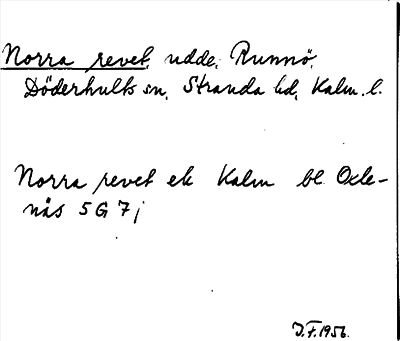 Norra revet, udde, Runnö,
Döderhults sn, Stranda hd, Kalm. l.
Norra revet ek Kalm bl Oxle-
näs 5G 7j
J.F. 1956.